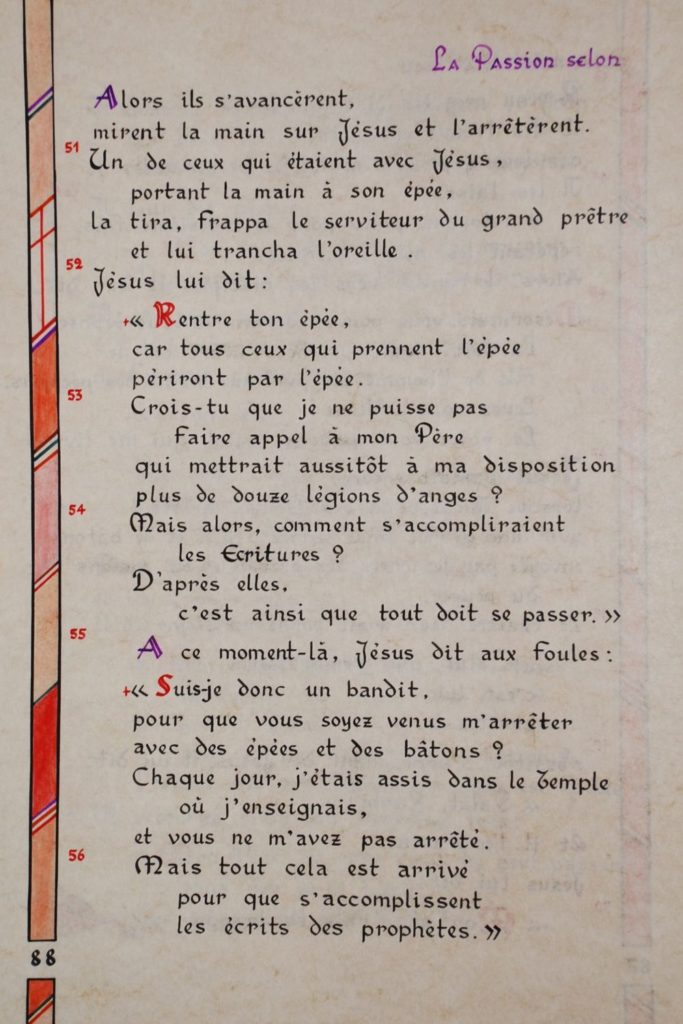 La Passion selon
Alors ils s'avancèrent,
mirent la main sur Jésus et l'arrêtèrent.
51
Un de ceux qui étaient avec Jésus,
portant la main à son épée,
la tira, frappa le serviteur du grand prêtre
et lui trancha l'oreille.
52
Jésus lui dit:
+« Rentre ton épée,
car tous ceux qui prennent l'épée
périront par l'épée.
53
Crois-tu que je ne puisse pas
faire appel à mon Père
qui mettrait aussitôt à ma disposition
plus de douze légions d'anges ?
54
Mais alors, comment s'accompliraient
les Ecritures ?
D'après elles,
c'est ainsi que tout doit se passer. »
55
A ce moment-là, Jésus dit aux foules:
+« Suis-je donc un bandit,
pour que vous soyez venus m'arrêter
avec des épées et des bâtons ?
Chaque jour, j'étais assis dans le Temple
où j'enseignais,
et vous ne m'avez pas arrêté.
56
Mais tout cela est arrivé
pour que s'accomplissent
les écrits des prophètes. »
88